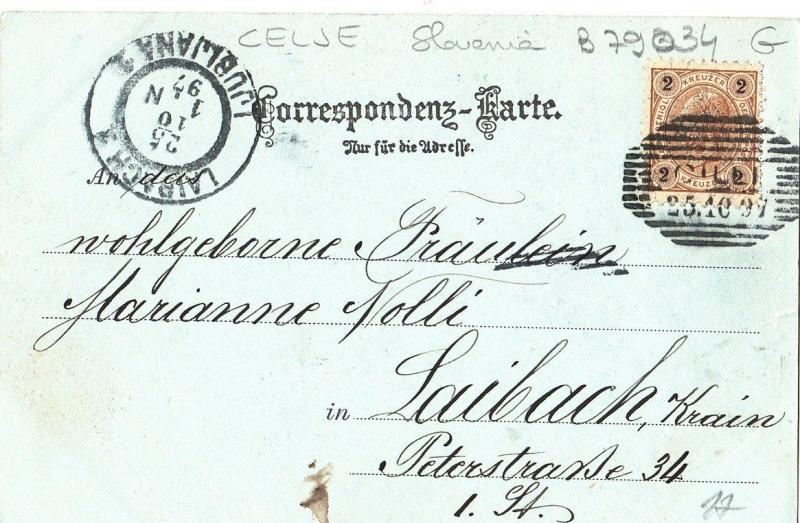 CELJE Slovenia B 79034 G
LAIBACH LJUBLJANA
25
10
97
2 KREUZER 2
2 KREUZER 2
Correspondenz-Karte.
Nur für die Adresse.
CILLI
25.10.97
An
wohlgeborne Fräulein
Marianne Nolli
in Laibach, Krain
Peterstraße 34
1. St.
77